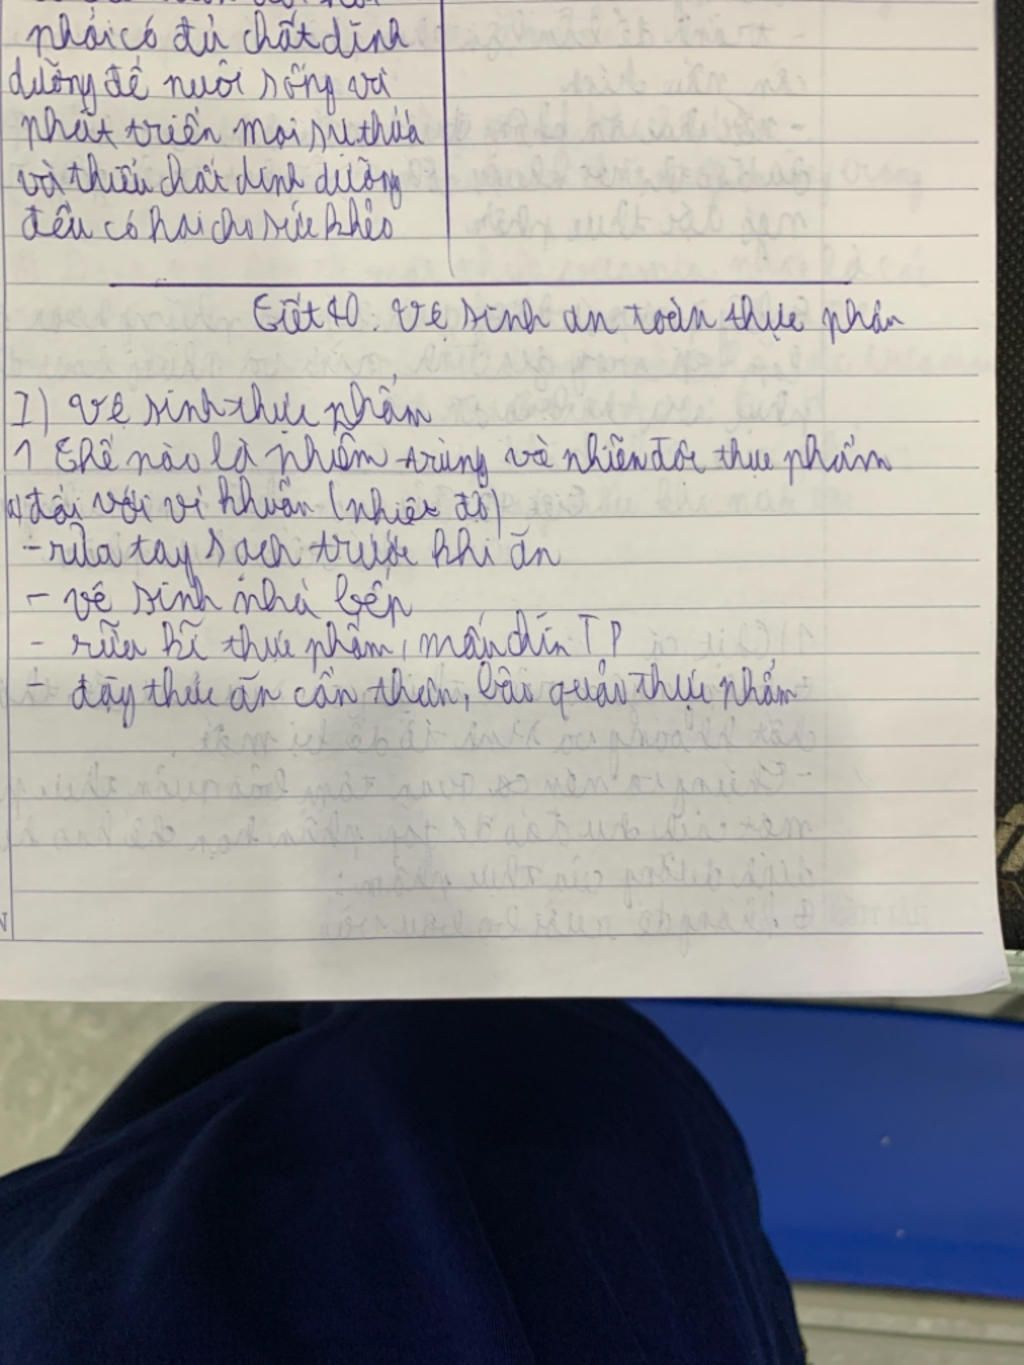 phải có đủ chất dinh
dưỡng để nuôi sống và
phát triển mọi sự thừa
và thiếu chất dinh dưỡng
đều có hại cho sức khẻo
Tiết 40. Vệ sinh an toàn thực phẩn
I) Vệ sinh thực phẩm
1 Thế nào là nhiễm trùng và nhiễn độc thực phẩm
a) đối với vi khuẩn (nhiệt độ)
- rửa tay sạch trước khi ăn
- vệ sinh nhà bếp
- rữa kĩ thực phẩm, nấu chín TP
- đậy thức ăn cẩn thận, bảo quản thực phẩm